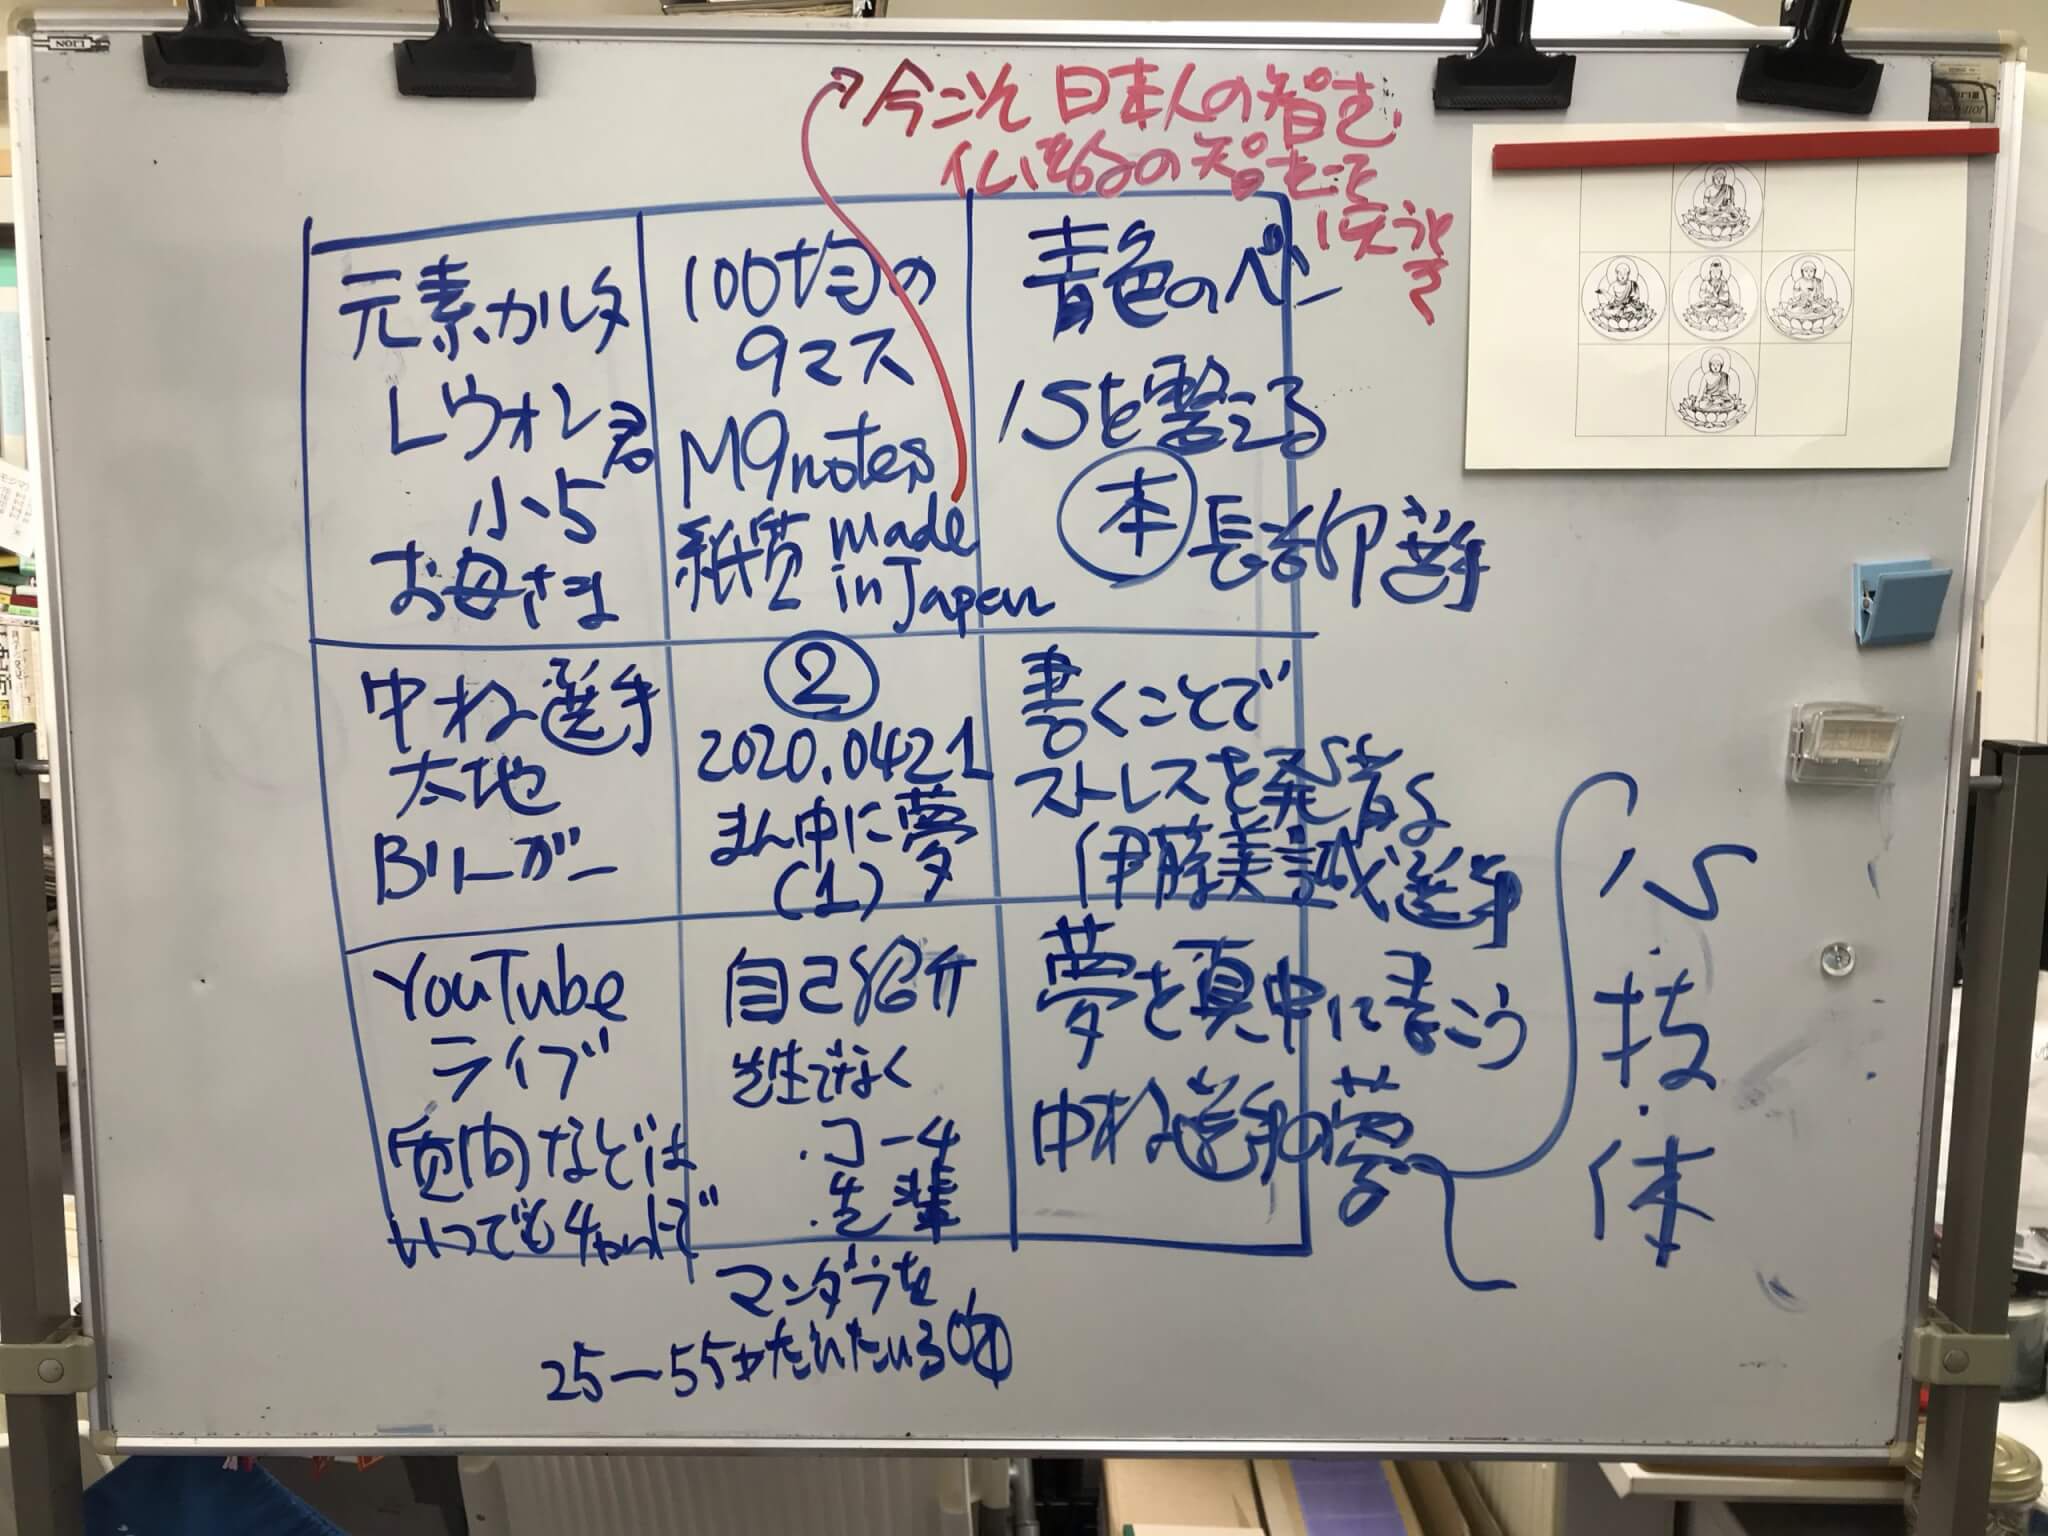 今こそ日本人の智を
仏さまの智をこそ
使うとき
元素カルタ
Lウォン君
小5
お母さま
100均の
9マス
M9notes
紙質 made
in Japan
青色のペン
心を整える
本 長谷部選手
中村選手
太地
Bリーガー
②
2020.0421
まん中に夢
(1)
書くことで
ストレスを発散
伊藤美誠選手
YouTube
ライブ
質問などは
いつでも
自己紹介
先生でなく
・コーチ
・先輩
夢を真中に書こう
中村選手の夢
心
・
技
・
体
マンダラを
25-55
LION